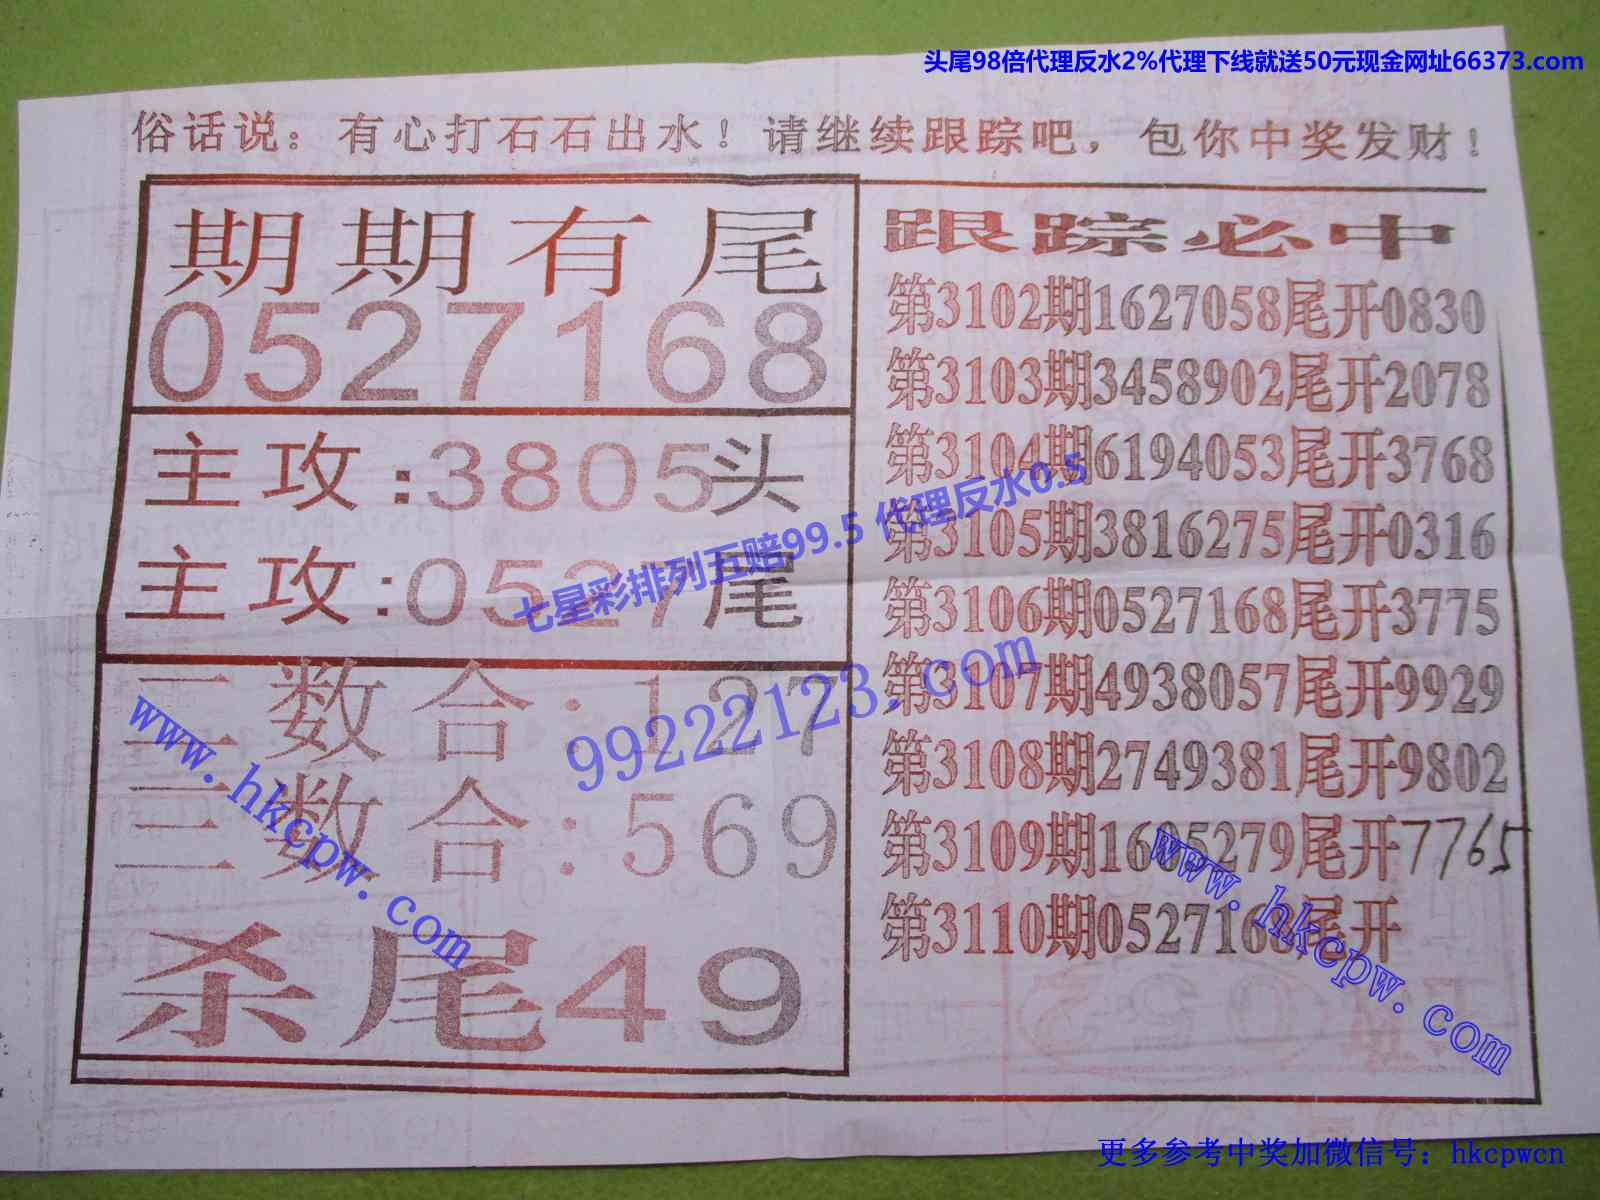 头尾98倍代理反水2%代理下线就送50元现金网址66373.com
俗话说：有心打石石出水！请继续跟踪吧，包你中奖发财！
期期有尾
0527168
主攻:3805头
主攻:0527尾
二数合:127
三数合:569
杀尾49
跟踪必中
第3102期1627058尾开0830
第3103期3458902尾开2078
第3104期6194053尾开3768
第3105期3816275尾开0316
第3106期0527168尾开3775
第3107期4938057尾开9929
第3108期2749381尾开9802
第3109期1605279尾开7765
第3110期0527168尾开
七星彩排列五赔99.5 代理反水0.5
99222123.com
www.hkcpw.com
www.hkcpw.com
更多参考中奖加微信号：hkcpwcn